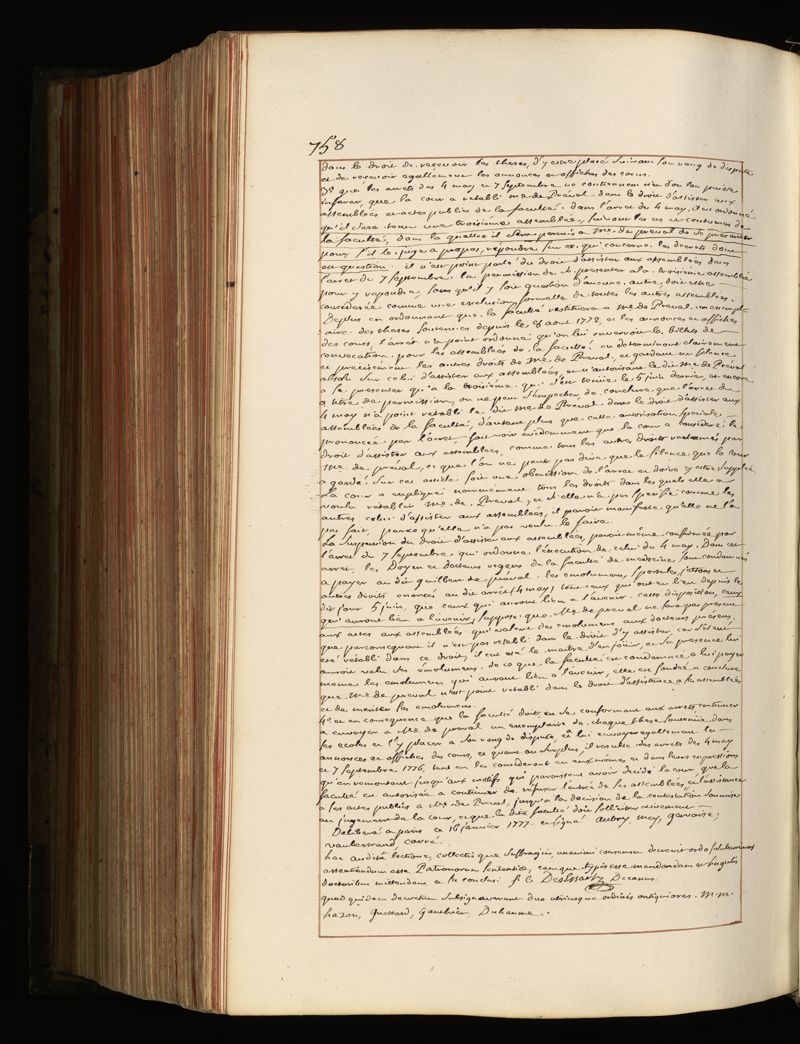 758
dans le droit de recevoir les theses, d'y estre placé suivant son rang de dispute
et de recevoir egallement les annonces et affiches des cours.
3° que les arrets des 4 may et 7 septembre ne contiennent rien d'ou l'on puisse
inferer, que la cour a retabli me de Préval dans le droit d'assister aux
assemblées et actes publics de la faculté. dans l'arret du 4 may, il est ordonné
qu'il sera tenu une troisieme assemblée, suivant les us et coutumes de
la faculté, dans la quelle il sera permis a me. de preval de se presenter
pour s'il le juge a propos, repondre sur ce qui concerne les decrets dont
est question. il n'est point parlé du droit d'assister aux assemblées dans
l'arret du 7 septembre. la permission de se presenter a la troisieme assemblée
pour y repondre, sans qu'il y soit question d'aucune autre, doit estre
considerée comme une exclusion formelle de toutes les autres assemblées.
Deplus en ordonnant que la faculté restituera a me de Preval un exempl-
aire des theses soutenues depuis le 8 aout 1772, et les annonces et affiches
des cours, l'arret n'a point ordonné qu'on lui enverroit les billets de
convocation pour les assemblées de la faculté. en determinant clairement
et precisement les autres droits de me de Preval, et gardant un silence
absolu sur celui d'assister aux assemblées, et n'autorisant le dit me de Préval
a se presenter qu'a la troisieme qui s'est tenue le 5 juin dernier, et encore
a titre de permission, on ne peut s'empecher de conclure que l'arret du
4 may n'a point retabli le dit me de Preval dans le droit d'assister aux
assemblées de la faculté, d'autant plus que cette autorisation speciale
prononcée par l'arret fait voir evidemment que la cour a consideré le
droit d'assister aux assemblées, comme tous les autres droits reclamés par
me. de préval, et que l'on ne peut pas dire que le silence que la cour
a gardé sur cet article soit une obmission de l'arret et doive y estre supplée
la cour a expliqué nommément tous les droits dans les quels elle a
voulu retablir me. de Preval, et si elle n'a pas specifié comme les
autres celui d'assister aux assemblées, il paroit manifeste qu'elle ne l'a
pas fait, parce qu'elle n'a pas voulu le faire.
La suspension du droit d'assister aux assemblées, paroit même confirmée par
l'arret du 7 septembre qui ordonne l'execution de celui du 4 may. Dans cet
arret, les Doyen et docteurs regens de la faculté de medecine sont condamnés
a payer au dit guilbert de préval les emolumens, sportules, jettons et
autres droits enoncés au dit arrêt (4 may) tous ceux qui ont eu lieu depuis le
dit jour 5 juin, que ceux qui auront lieu a l'avenir. cette disposition, ceux
qui auront lieu a l'avenir, suppose que Me de preval ne sera pas present
aux actes aux assemblées qui valent des emolumens aux docteurs presens;
que par consequent il n'est pas retabli dans le droit d'y assister, car s'il eut
eté retabli dans ce droit, il eut eté le maitre d'en jouir, et sa presence lui
auroit valu des emolumens. de ce que la faculté est condamnée a lui payer
meme les emolumens qui auront lieu a l'avenir, elle est fondée a conclure
que me de preval n'est point retabli dans le droit d'assistance a ses assemblées
et de meriter les emolumens.
4° et en consequence que la faculté doit, en se conformant aux arrets, continuer
a envoyer a Me de preval un exemplaire de chaque these soutenue dans
ses ecoles et l'y placer a son rang de dispute, et lui envoyer egallement les
annonces et affiches des cours, et quant au surplus, il resulte des arrets des 4 may
et 7 septembre 1776, tant en les considerant en eux mêmes et dans leurs expressions
qu'en remontant jusqu'aux motifs qui paroissent avoir decidé la cour, que la
faculté est autorisée a continuer de refuser l'entrée de ses assemblées, et l'assistance
a ses actes publics a Me de Preval, jusqu'a la decision de la contestation soumise
au jugement de la cour, et que la dite faculté doit solliciter vivement.
Deliberé a paris ce 16 janvier 1777. et signé Aubry, mey, gervaise,
vaubertrand, carré.
hac audita lectione, collectis que suffragiis, unanimi consensu decrevit ordo saluberrimus
assentiendum esse Patronorum sententiæ, eamque typis esse mandandam et singulis
doctoribus mittendam et sic conclusi. J. C. Desessartz Decanus.
quod quidem decretum subsignaverunt duo utriusque ordinis antiquiores. M. M.
hazon, Guettard, Gauthier, Duhaume.